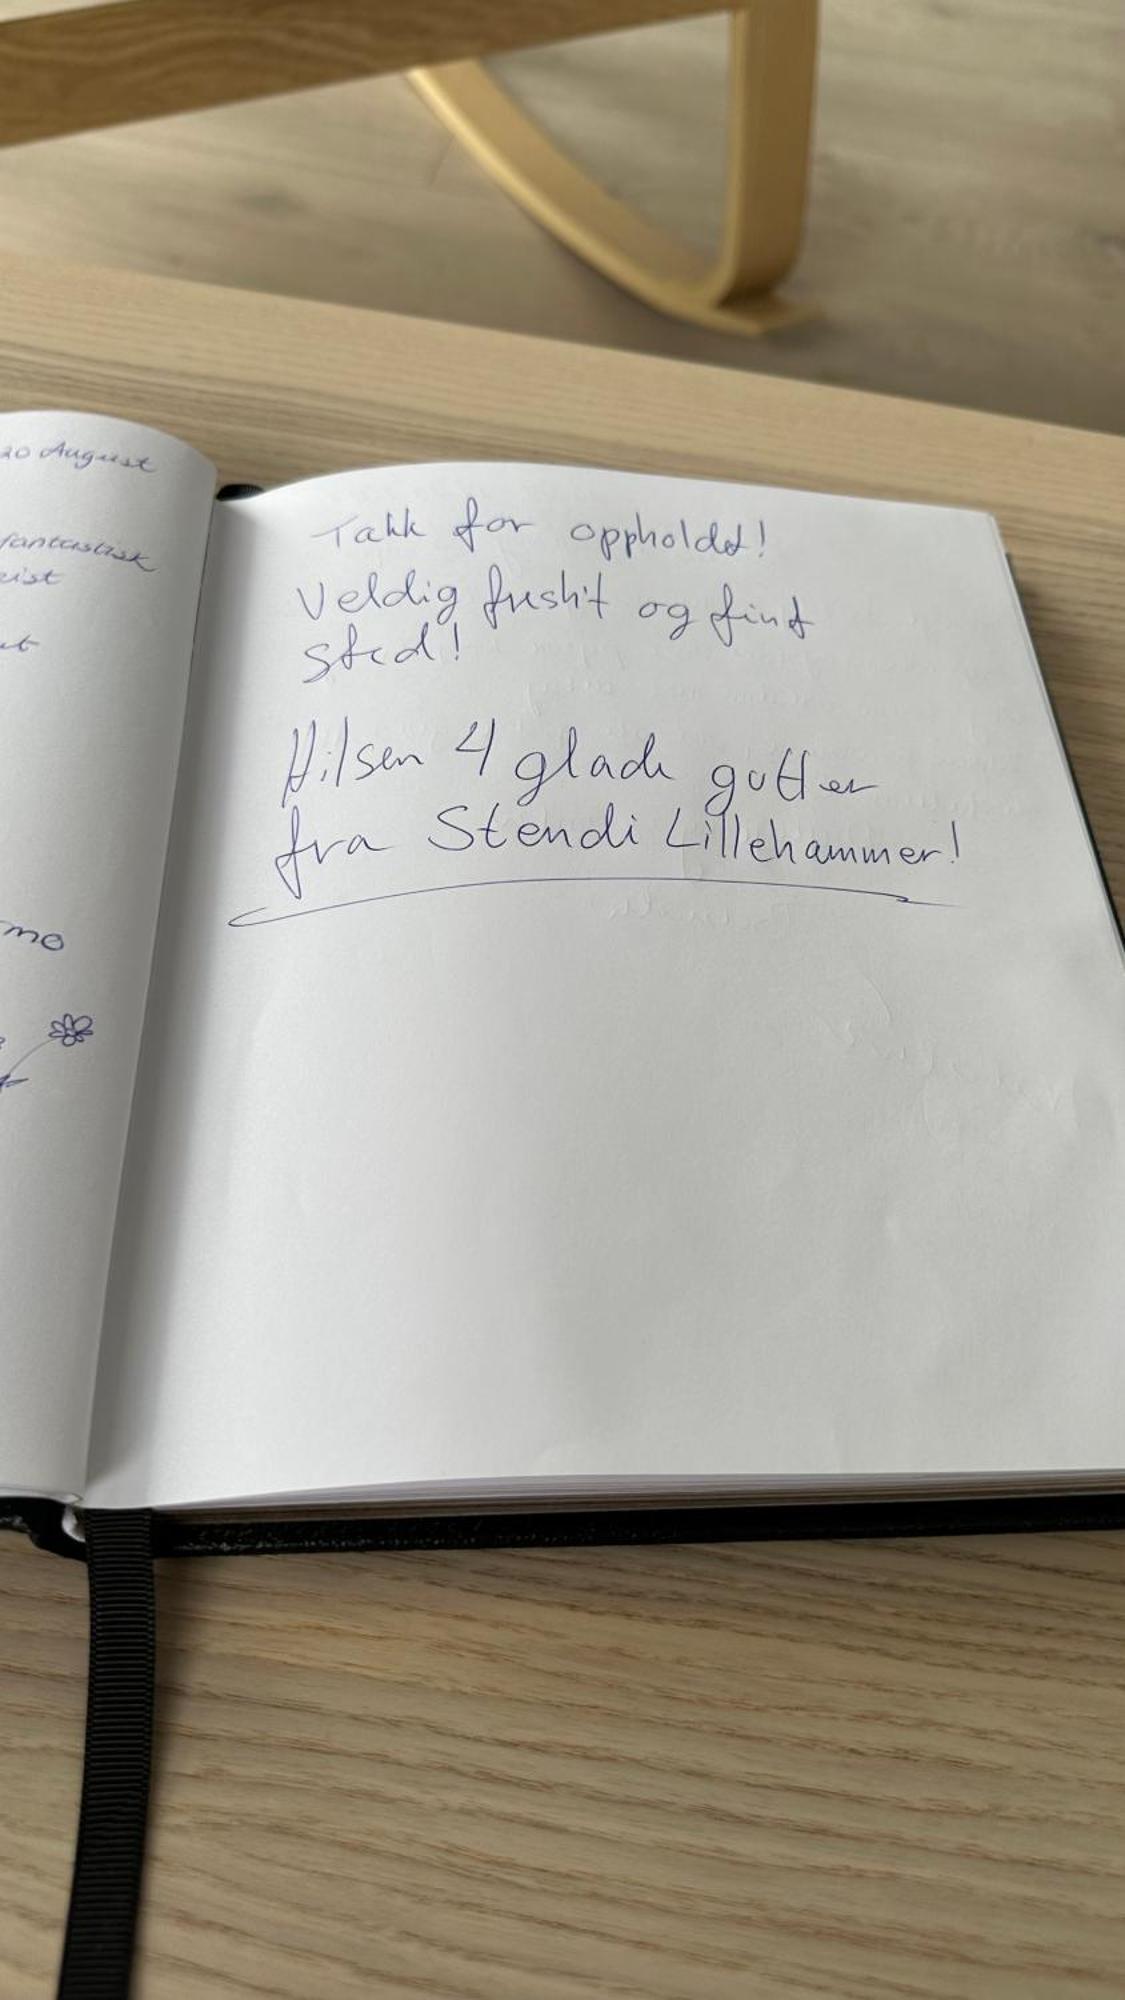 20 August
fantastisk
mo
Takk for oppholdet!
Veldig freshit og fint
sted!
Hilsen 4 glade gutter
fra Stendi Lillehammer!